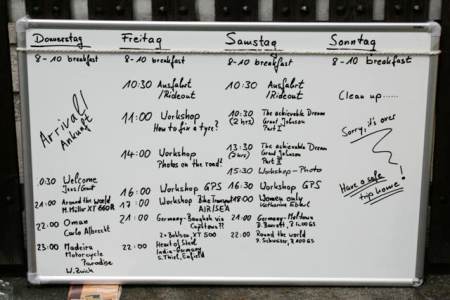 Donnerstag
8-10 breakfast
Arrival!
Ankunft
20:30 Welcome
Jens/Grant
21:00 Around the world
M. Müller XT 660R
22:00 Oman
Carlo Albrecht
23:00 Madeira
Motorcycle
Paradise
W. Zwick
Freitag
8-10 breakfast
10:30 Ausfahrt
/Rideout
11:00 Workshop
How to fix a tyre?
14:00 Workshop
Photos on the road!
16:00 Workshop GPS
17:00 Workshop Bike Transport
AIR/SEA
21:00 Germany-Bangkok via
Capetown??
XT 500
22:00 Heart of Steel
India-Germany
S. Thiel, Enfield
Samstag
8-10 breakfast
10:30 Ausfahrt
/Rideout
10:30 The achievable Dream
(2hrs) Grant Johnson
Part I
13:30 The achievable Dream
(2hrs) Grant Johnson
Part II
15:30 Workshop-Photo
16:30 Workshop GPS
18:00 Women only
21:00 Germany-
22:00 Round the world
P. Schuster,
Sonntag
8-10 breakfast
Clean up.....
Sorry, it's over
Have a safe
trip home!